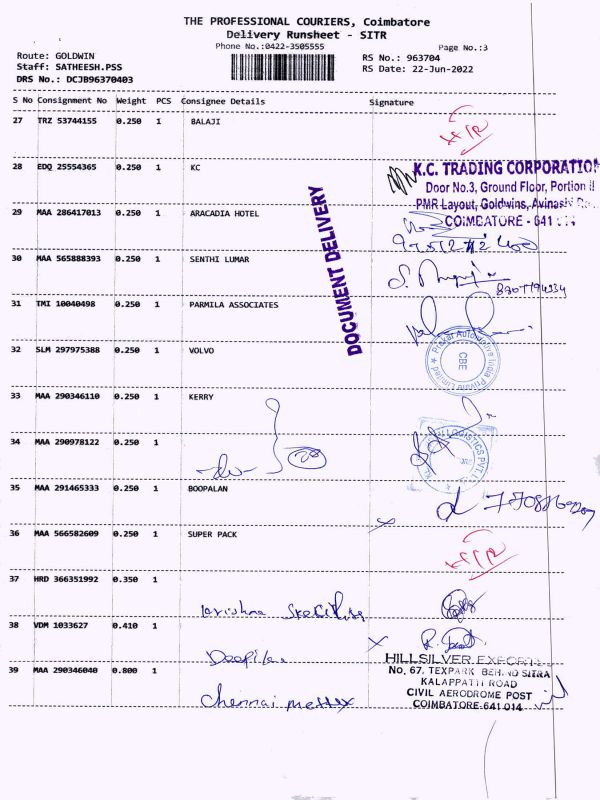 THE PROFESSIONAL COURIERS, Coimbatore
Delivery Runsheet - SITR
Phone No.:0422-3505555
Page No.:3
Route: GOLDWIN
Staff: SATHEESH.PSS
DRS No.: DCJB96370403
RS No.: 963704
RS Date: 22-Jun-2022
S No Consignment No Weight PCS Consignee Details Signature
27 TRZ 53744155 0.250 1 BALAJI
28 EDQ 25554365 0.250 1 KC
K.C. TRADING CORPORATION
Door No.3, Ground Floor, Portion II
PMR Layout, Goldwins, Avinashi
COIMBATORE - 641
29 MAA 286417013 0.250 1 ARACADIA HOTEL
DOCUMENT DELIVERY
30 MAA 565888393 0.250 1 SENTHI LUMAR
31 TMI 10040498 0.250 1 PARMILA ASSOCIATES
32 SLM 297975388 0.250 1 VOLVO
CBE
33 MAA 290346110 0.250 1 KERRY
34 MAA 290978122 0.250 1
LOGISTICS PVT.
35 MAA 291465333 0.250 1 BOOPALAN
36 MAA 566582609 0.250 1 SUPER PACK
37 HRD 366351992 0.350 1
38 VDM 1033627 0.410 1
HILLSILVER EXPORTS
No, 67, TEXPARK BEHIND SITRA
KALAPPATTI ROAD
CIVIL AERODROME POST
COIMBATORE-641 014
39 MAA 290346040 0.800 1
Chennai